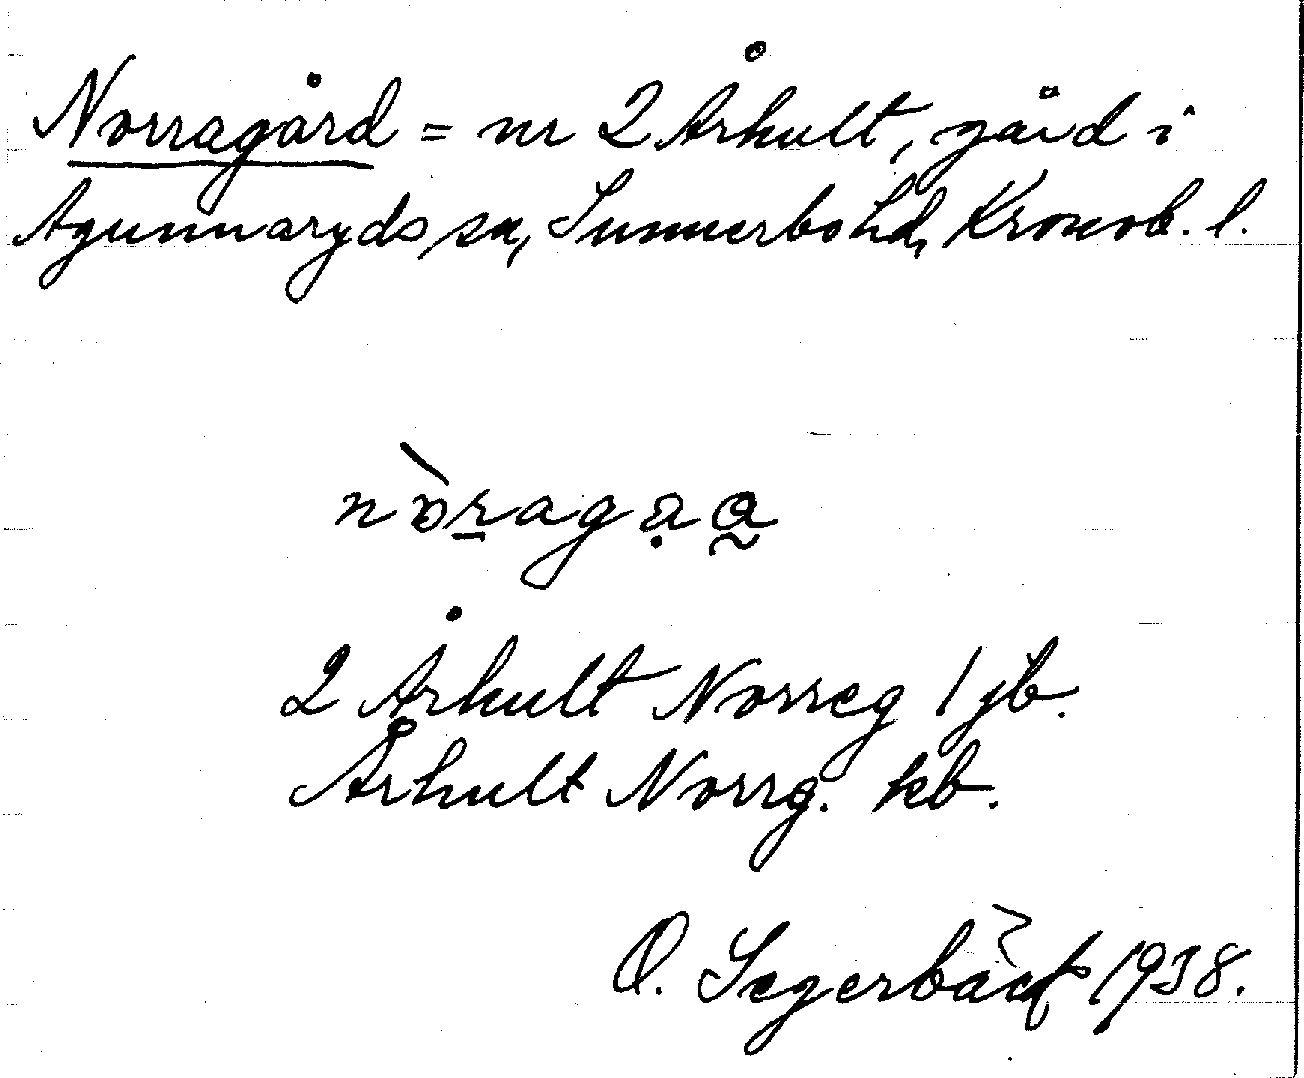 Norragård = nr 2 Århult, gård i
Agunnaryds sn, Sunnerbo hd, Kronob. l.
2 Århult Norreg 1 jb.
Århult Norrg. kb.
O. Segerbäck 1938.